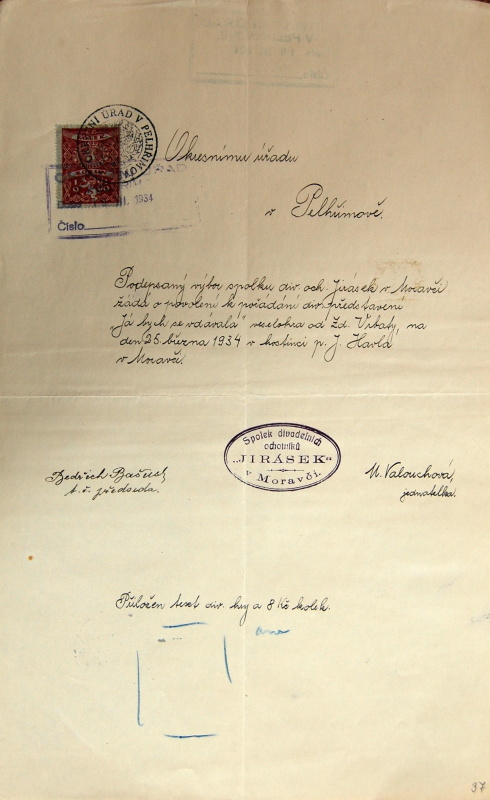 OKRESNÍ ÚŘAD V PELHŘIMOVĚ
III. 1934
Číslo
Okresnímu úřadu
v Pelhřimově.
Podepsaný výbor spolku div. och. Jirásek v Moravči
žádá o povolení k pořádání div. představení
„Já bych se vdávala" veselohra od Zd. Vrbaty, na
den 25. března 1934 v hostinci p. J. Havla
v Moravči.
Spolek divadelních
ochotníků
„JIRÁSEK"
v Moravči.
Bedřich
t. č. předseda.
M. Valouchová,
jednatelka.
Přiložen text div. hry a 8 Kč kolek.
ano
37